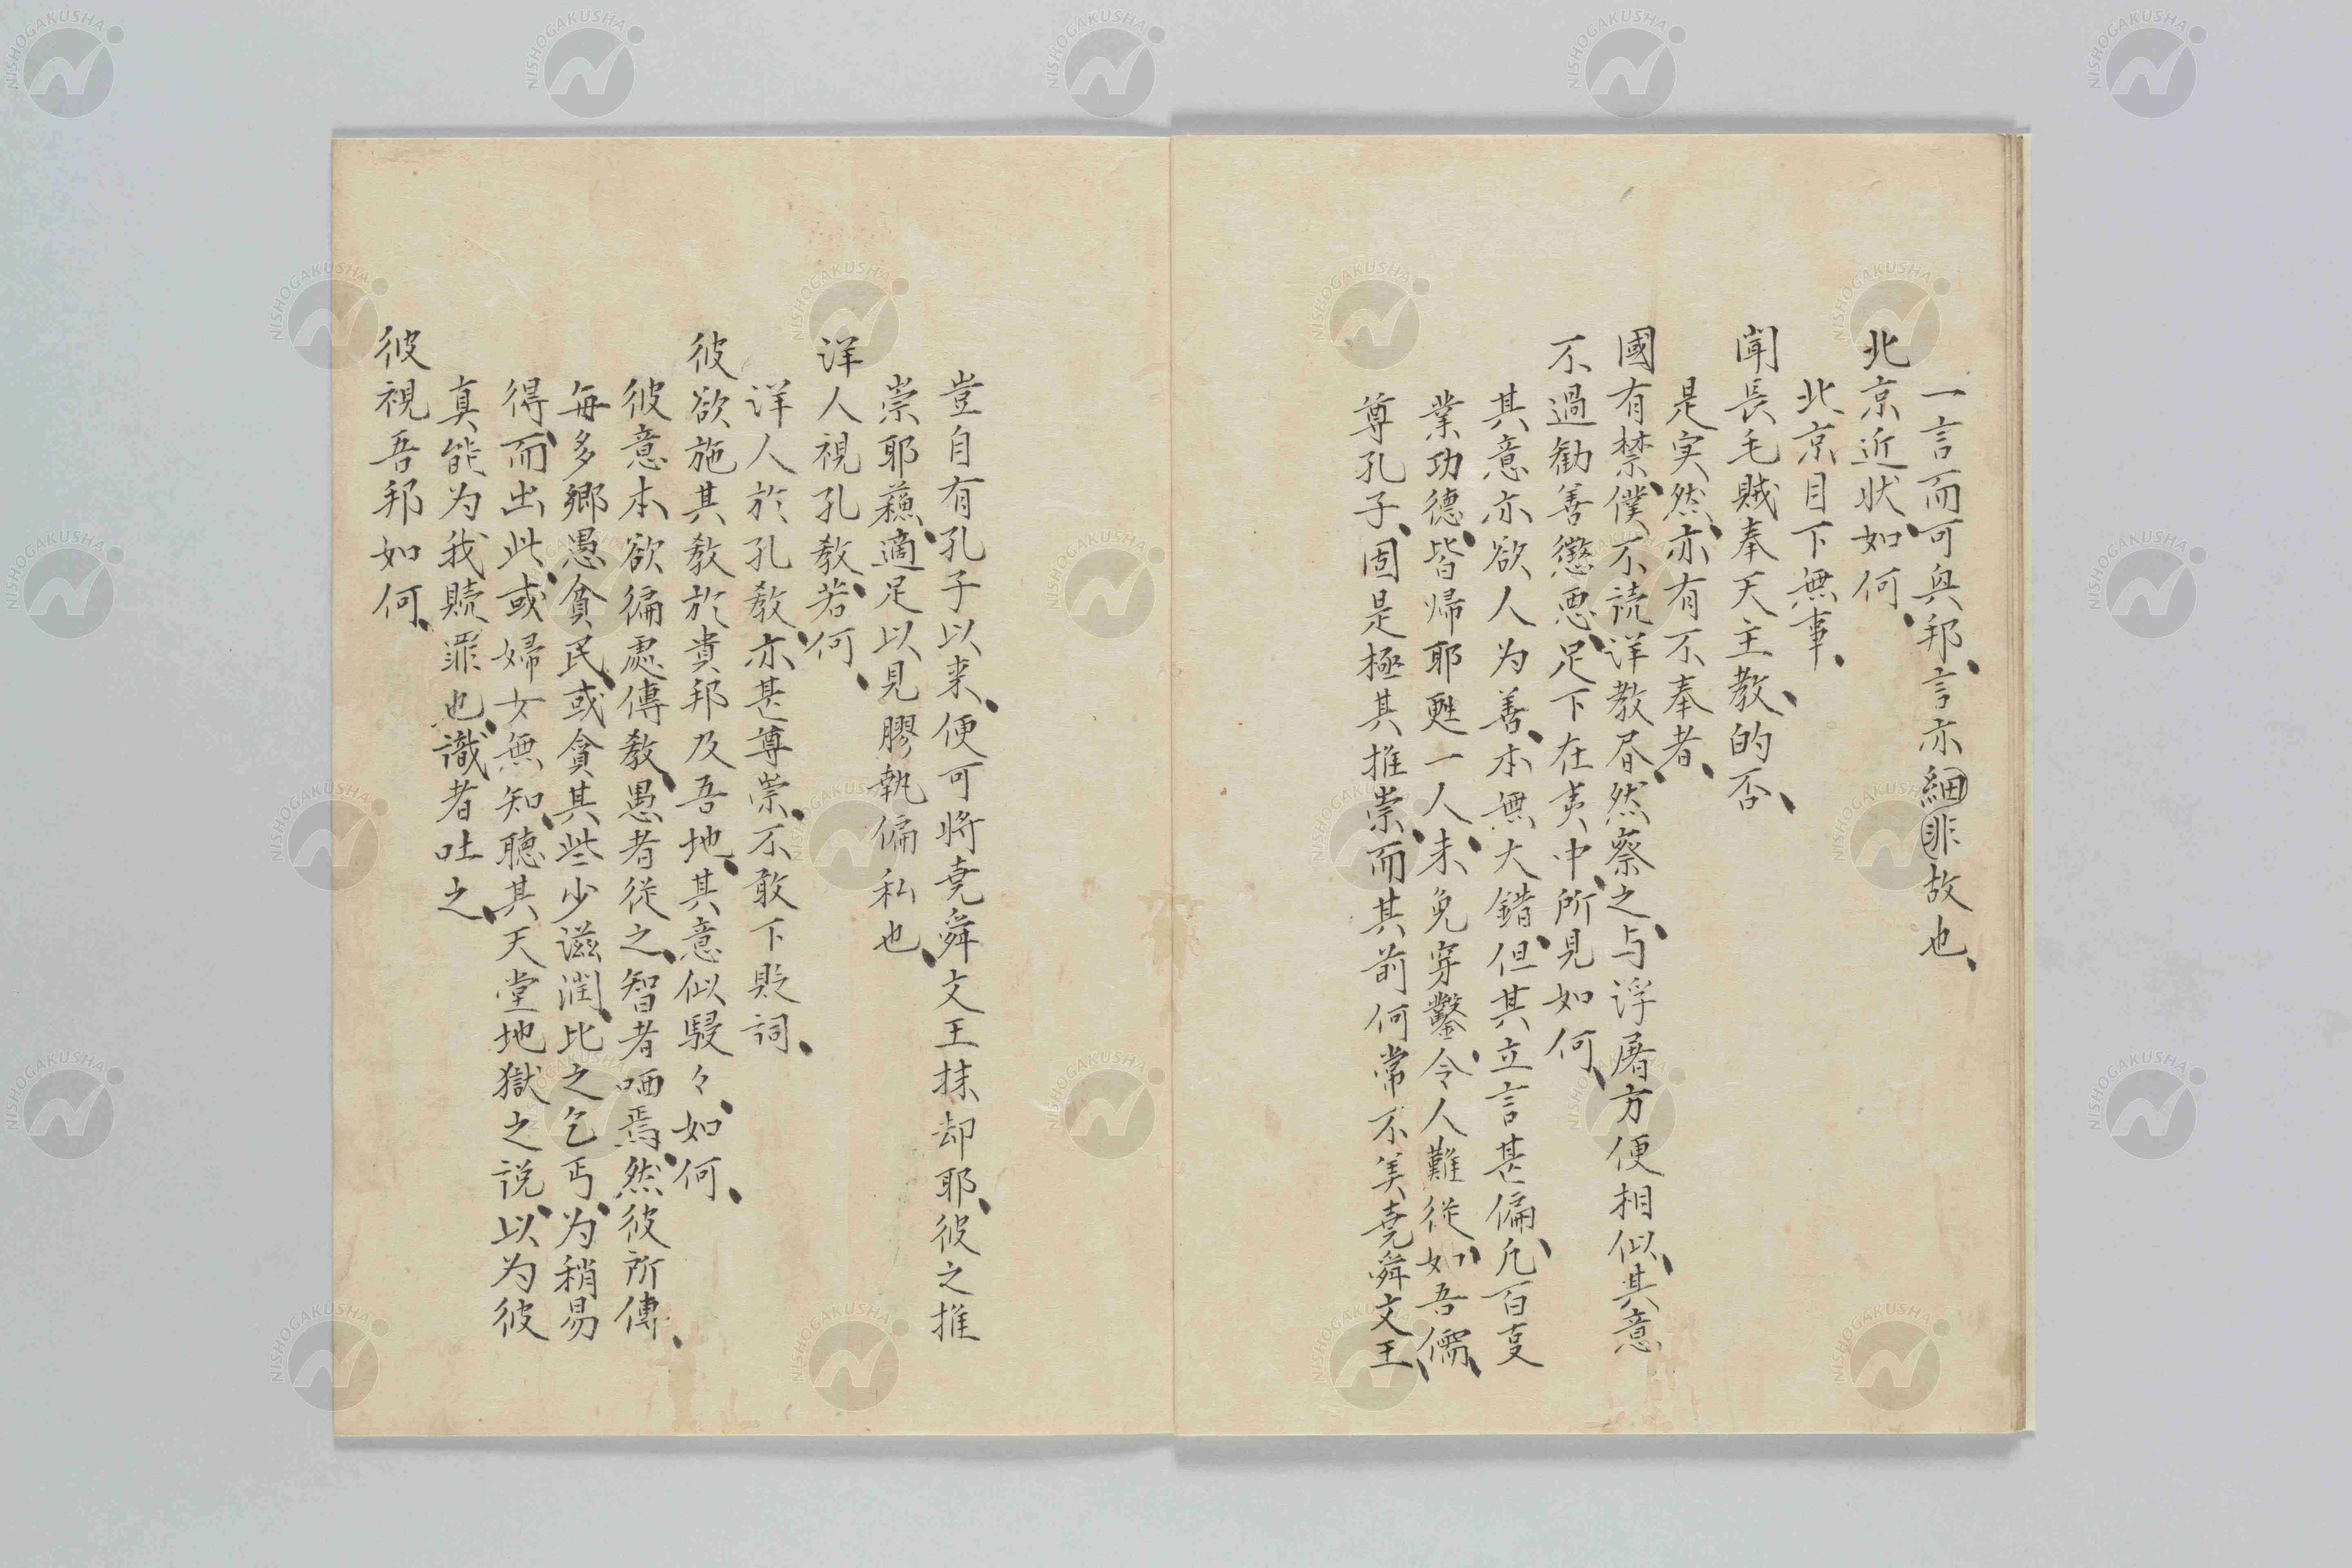 一言而可與邦、言亦細非故也、
北京近狀如何、
北京目下無事、
聞長毛賊奉天主教、的否、
是实然、亦有不奉者、
國有禁、僕不読洋教昏然察之、与浮屠方便相似、其意
不過勧善懲悪、足下在夷中、所見如何、
其意亦欲人为善、本無大錯、但其立言甚偏、凡百支
業功德、皆帰耶甦一人、未免穿鑿、令人難從、如吾儒、
尊孔子、固是極其推崇、而其前何常不美堯舜文王、
豈自有孔子以来、便可将堯舜文王抹却耶、彼之推
崇耶蘓、適足以見膠執偏私也、
洋人視孔教、若何、
洋人於孔教、亦甚尊崇、不敢下貶詞、
彼欲施其教於貴邦及吾地、其意似駸々、如何、
彼意本欲徧處傳教、愚者從之、智者哂焉、然彼所傳、
每多鄉愚貧民、或貪其些少滋潤、比之乞丐、为稍易
得、而出此、或婦女無知、聴其天堂地獄之説、以为彼
真能为我贖罪也、識者吐之、
彼視吾邦如何、